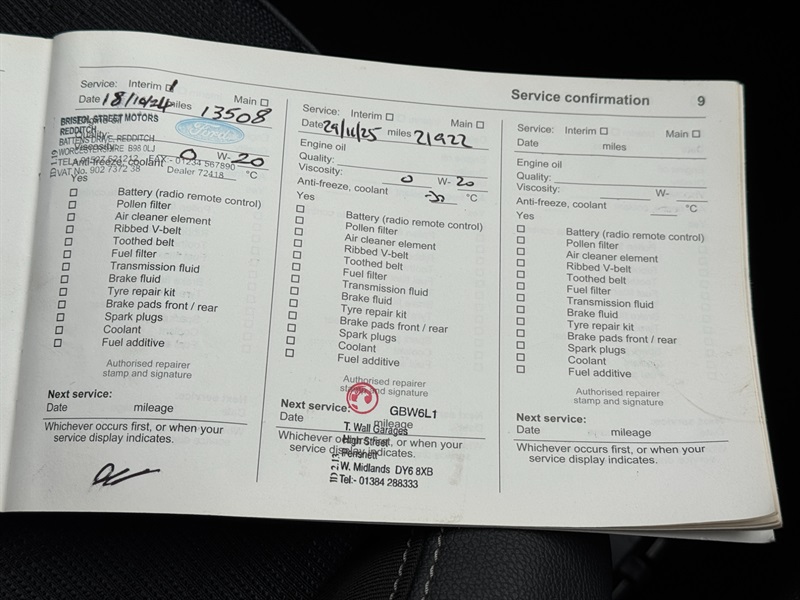 Service confirmation 9
Service: Interim Main
Date 18/10/24 miles 13508
BRISTOL STREET MOTORS
REDDITCH
BATTENS DRIVE, REDDITCH
WORCESTERSHIRE B98 0LJ
TEL A 01527 621212 FAX - 01234 567890
VAT No. 902 7372 38 Dealer 72418
Ford
Engine oil
Quality:
Viscosity: 0 W- 20
Anti-freeze, coolant °C
Yes
Battery (radio remote control)
Pollen filter
Air cleaner element
Ribbed V-belt
Toothed belt
Fuel filter
Transmission fluid
Brake fluid
Tyre repair kit
Brake pads front / rear
Spark plugs
Coolant
Fuel additive
Authorised repairer
stamp and signature
Next service:
Date mileage
Whichever occurs first, or when your
service display indicates.
Service: Interim Main
Date 29/11/25 miles 21922
Engine oil
Quality:
Viscosity: 0 W- 20
Anti-freeze, coolant °C
Yes
Battery (radio remote control)
Pollen filter
Air cleaner element
Ribbed V-belt
Toothed belt
Fuel filter
Transmission fluid
Brake fluid
Tyre repair kit
Brake pads front / rear
Spark plugs
Coolant
Fuel additive
Authorised repairer
stamp and signature
Next service: GBW6L1
Date mileage
T. Wall Garages
High Street
Pensnett
W. Midlands DY6 8XB
Tel:- 01384 288333
Whichever occurs first, or when your
service display indicates.
Service: Interim Main
Date miles
Engine oil
Quality:
Viscosity: W-
Anti-freeze, coolant °C
Yes
Battery (radio remote control)
Pollen filter
Air cleaner element
Ribbed V-belt
Toothed belt
Fuel filter
Transmission fluid
Brake fluid
Tyre repair kit
Brake pads front / rear
Spark plugs
Coolant
Fuel additive
Authorised repairer
stamp and signature
Next service:
Date mileage
Whichever occurs first, or when your
service display indicates.